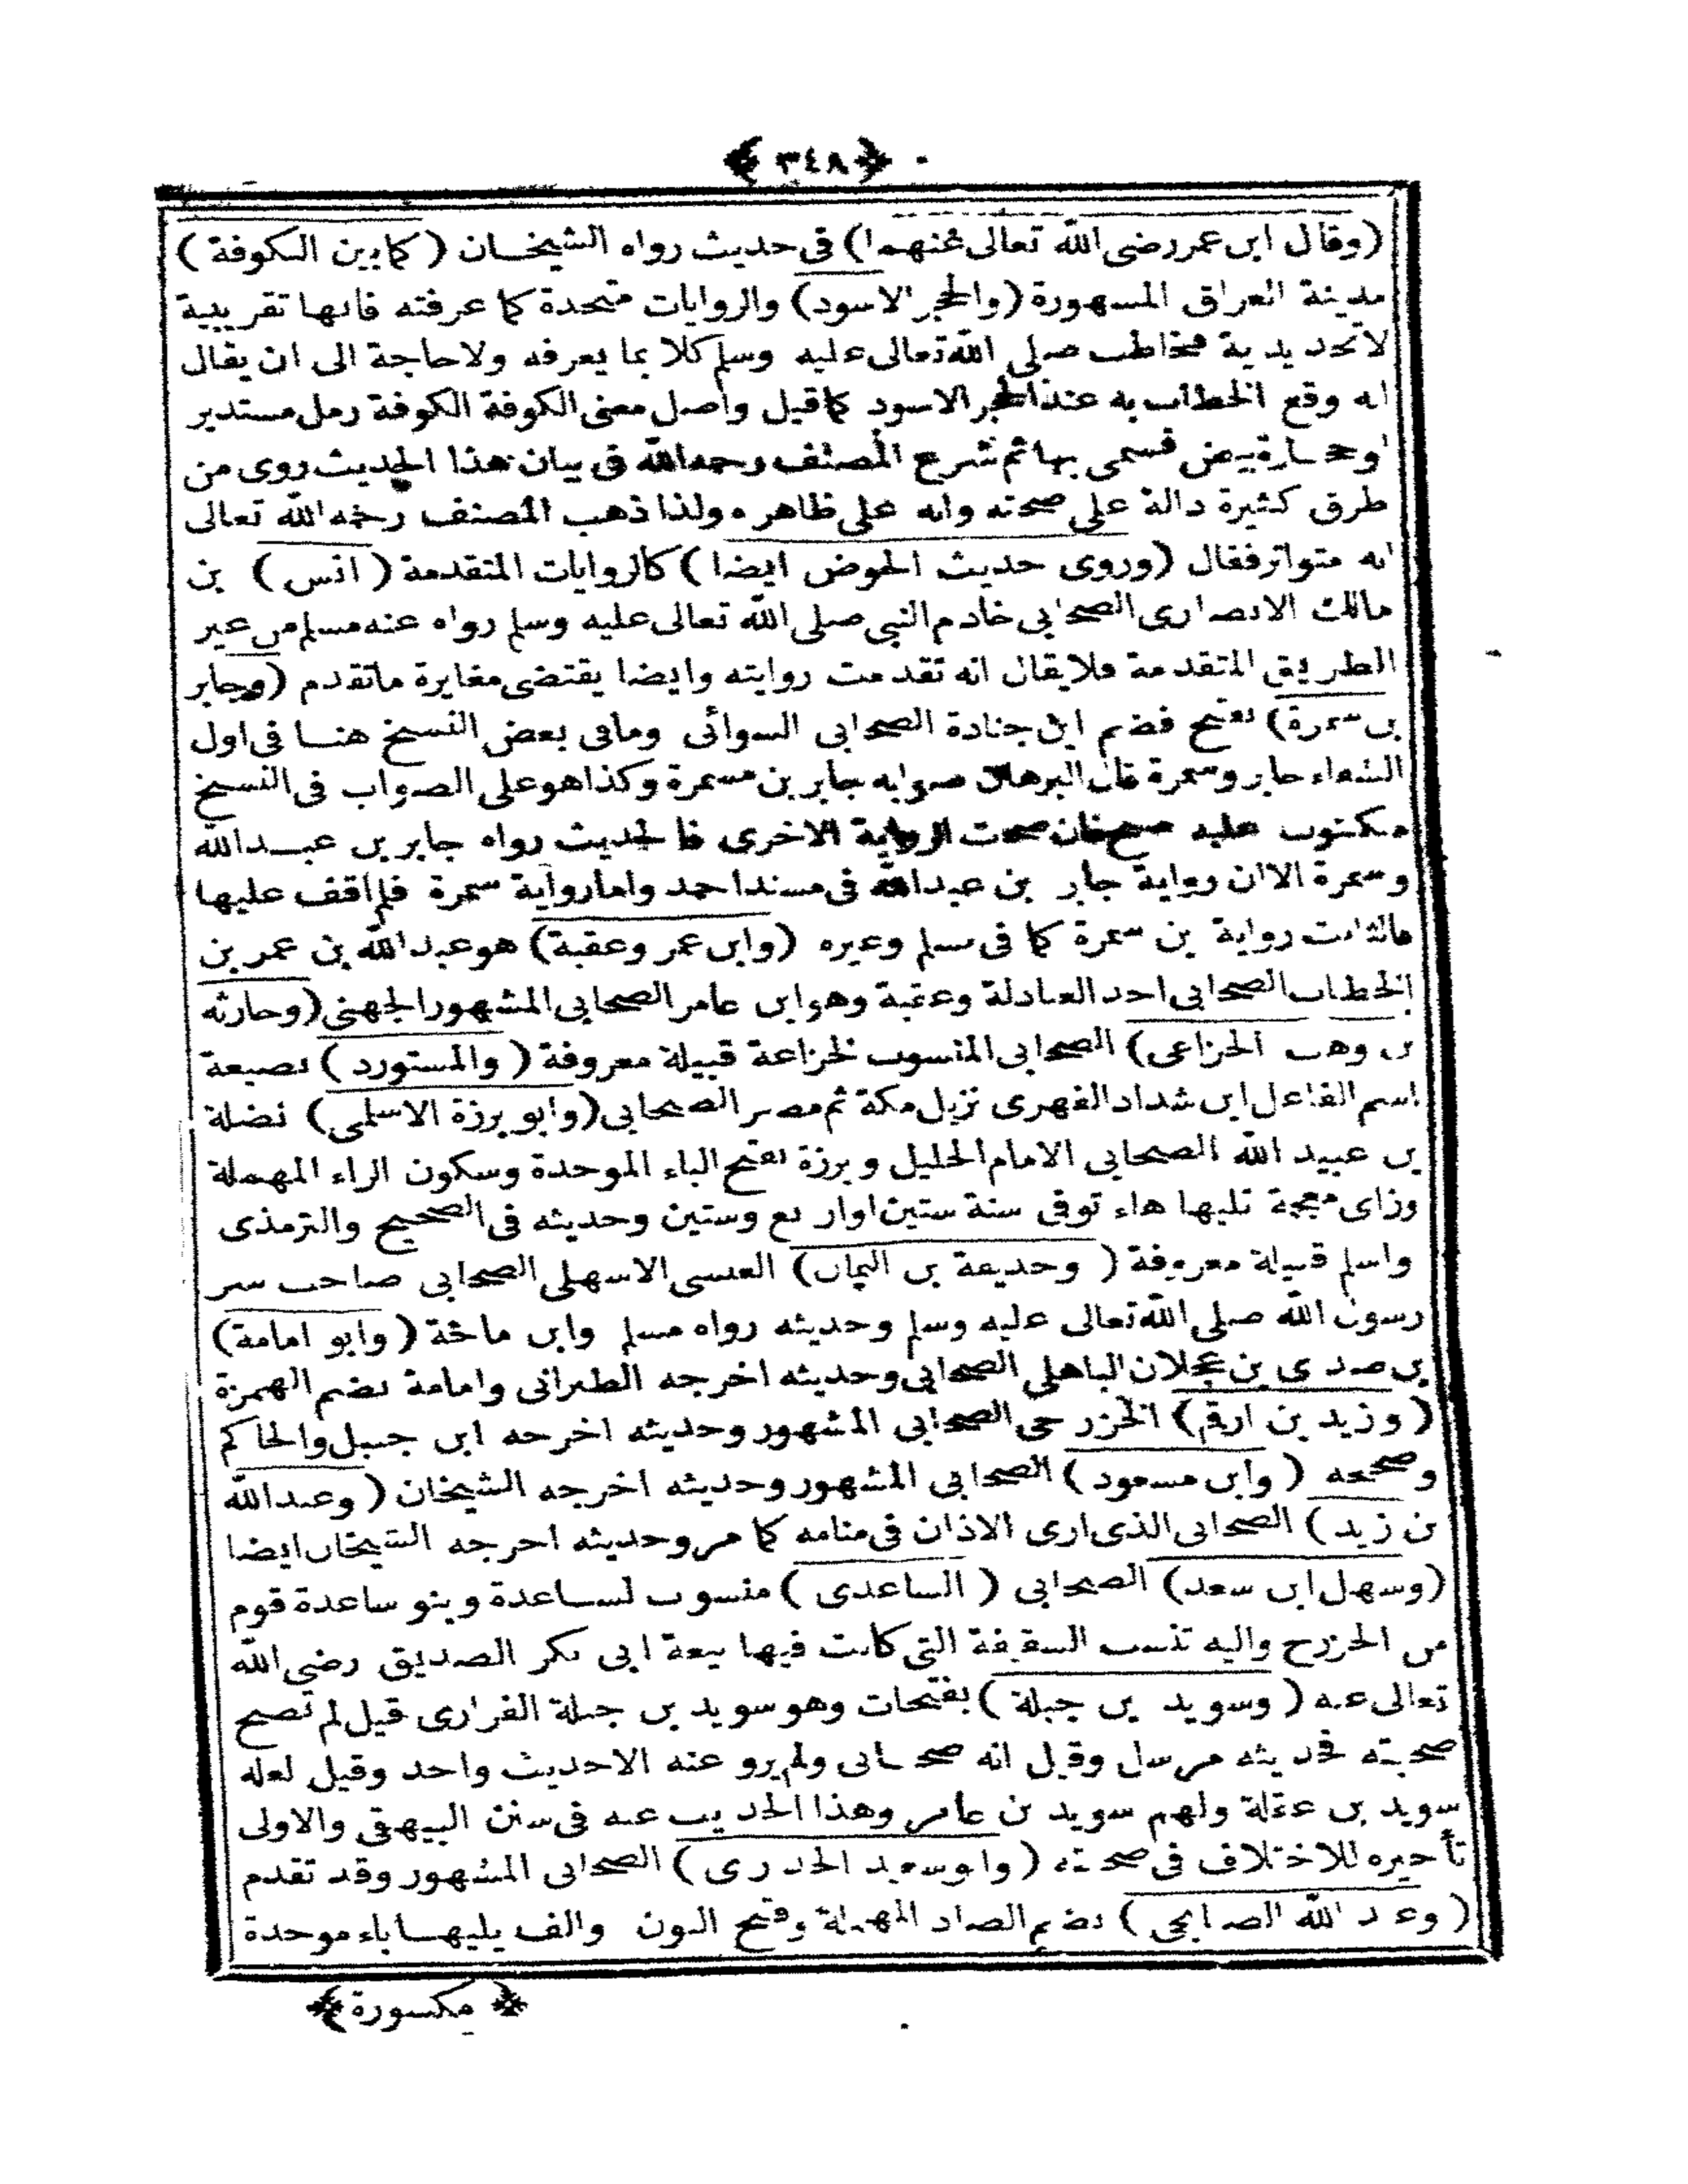 ﴿ ٣٤٨ ﴾
(وقال ابن عمر رضى الله تعالى عنهما) فى حديث رواه الشيخان (كما بين الكوفة)
مدينة العراق المشهورة (والحجر الاسود) والروايات متحدة كما عرفته فانها تقريبية
لا تحديدية فخاطب صلى الله تعالى عليه وسلم كلا بما يعرفه ولا حاجة الى ان يقال
انه وقع الخطاب به عند الحجر الاسود كما قيل واصل معنى الكوفة الكوفة رمل مستدير
او حجارة بيض فسمى بها ثم شرع المصنف رحمه الله فى بيان هذا الحديث روى من
طرق كثيرة دالة على صحته وانه على ظاهره ولذا ذهب المصنف رحمه الله تعالى
انه متواتر فقال (وروى حديث الحوض ايضا) كالروايات المتقدمة (انس) بن
مالك الانصارى الصحابى خادم النبى صلى الله تعالى عليه وسلم رواه عنه مسلم من غير
الطريق المتقدمة فلا يقال انه تقدمت روايته وايضا يقتضى مغايرة ما تقدم (وجابر
بن سمرة) بفتح فضم ابن جنادة الصحابى السوائى وما فى بعض النسخ هنا فى اول
الشفاء جابر وسمرة قال البرهان صوابه جابر بن سمرة وكذا هو على الصواب فى النسخ
مكتوب عليه صح فان صحت الرواية الاخرى فالحديث رواه جابر بن عبد الله
وسمرة الا ان رواية جابر بن عبد الله فى مسند احمد واما رواية سمرة فلم اقف عليها
فالثابت رواية بن سمرة كما فى مسلم وغيره (وابن عمر وعقبة) هو عبد الله بن عمر بن
الخطاب الصحابى احد العبادلة وعقبة وهو ابن عامر الصحابى المشهور الجهنى (وحارثه
بن وهب الخزاعى) الصحابى المنسوب لخزاعة قبيلة معروفة (والمستورد) بصيغة
اسم الفاعل ابن شداد الفهرى نزيل مكة ثم مصر الصحابى (وابو برزة الاسلمى) نضلة
بن عبيد الله الصحابى الامام الجليل وبرزة بفتح الباء الموحدة وسكون الراء المهملة
وزاى معجمة تليها هاء توفى سنة ستين او اربع وستين وحديثه فى الصحيح والترمذى
واسلم قبيلة معروفة (وحذيفة بن اليمان) العبسى الاسهلى الصحابى صاحب سر
رسول الله صلى الله تعالى عليه وسلم وحديثه رواه مسلم وابن ماجة (وابو امامة)
بن صدى بن عجلان الباهلى الصحابى وحديثه اخرجه الطبرانى وامامة بضم الهمزة
(وزيد بن ارقم) الخزرجى الصحابى المشهور وحديثه اخرجه ابن حنبل والحاكم
وصححه (وابن مسعود) الصحابى المشهور وحديثه اخرجه الشيخان (وعبد الله
بن زيد) الصحابى الذى ارى الاذان فى منامه كما مر وحديثه اخرجه الشيخان ايضا
(وسهل ابن سعد) الصحابى (الساعدى) منسوب لساعدة وبنو ساعدة قوم
من الخزرج واليه تنسب السقيفة التى كانت فيها بيعة ابى بكر الصديق رضى الله
تعالى عنه (وسويد بن جبلة) بفتحات وهو سويد بن جبلة الفزارى قيل لم تصح
صحبته فحديثه مرسل وقيل انه صحابى ولم يرو عنه الا حديث واحد وقيل لعله
سويد بن غفلة ولهم سويد بن عامر وهذا الحديث عنه فى سنن البيهقى والاولى
تأخيره للاختلاف فى صحبته (وابو سعيد الخدرى) الصحابى المشهور وقد تقدم
(وعبد الله الصنابحى) بضم الصاد المهملة وفتح النون والف يليها باء موحدة
﴿ مكسورة ﴾